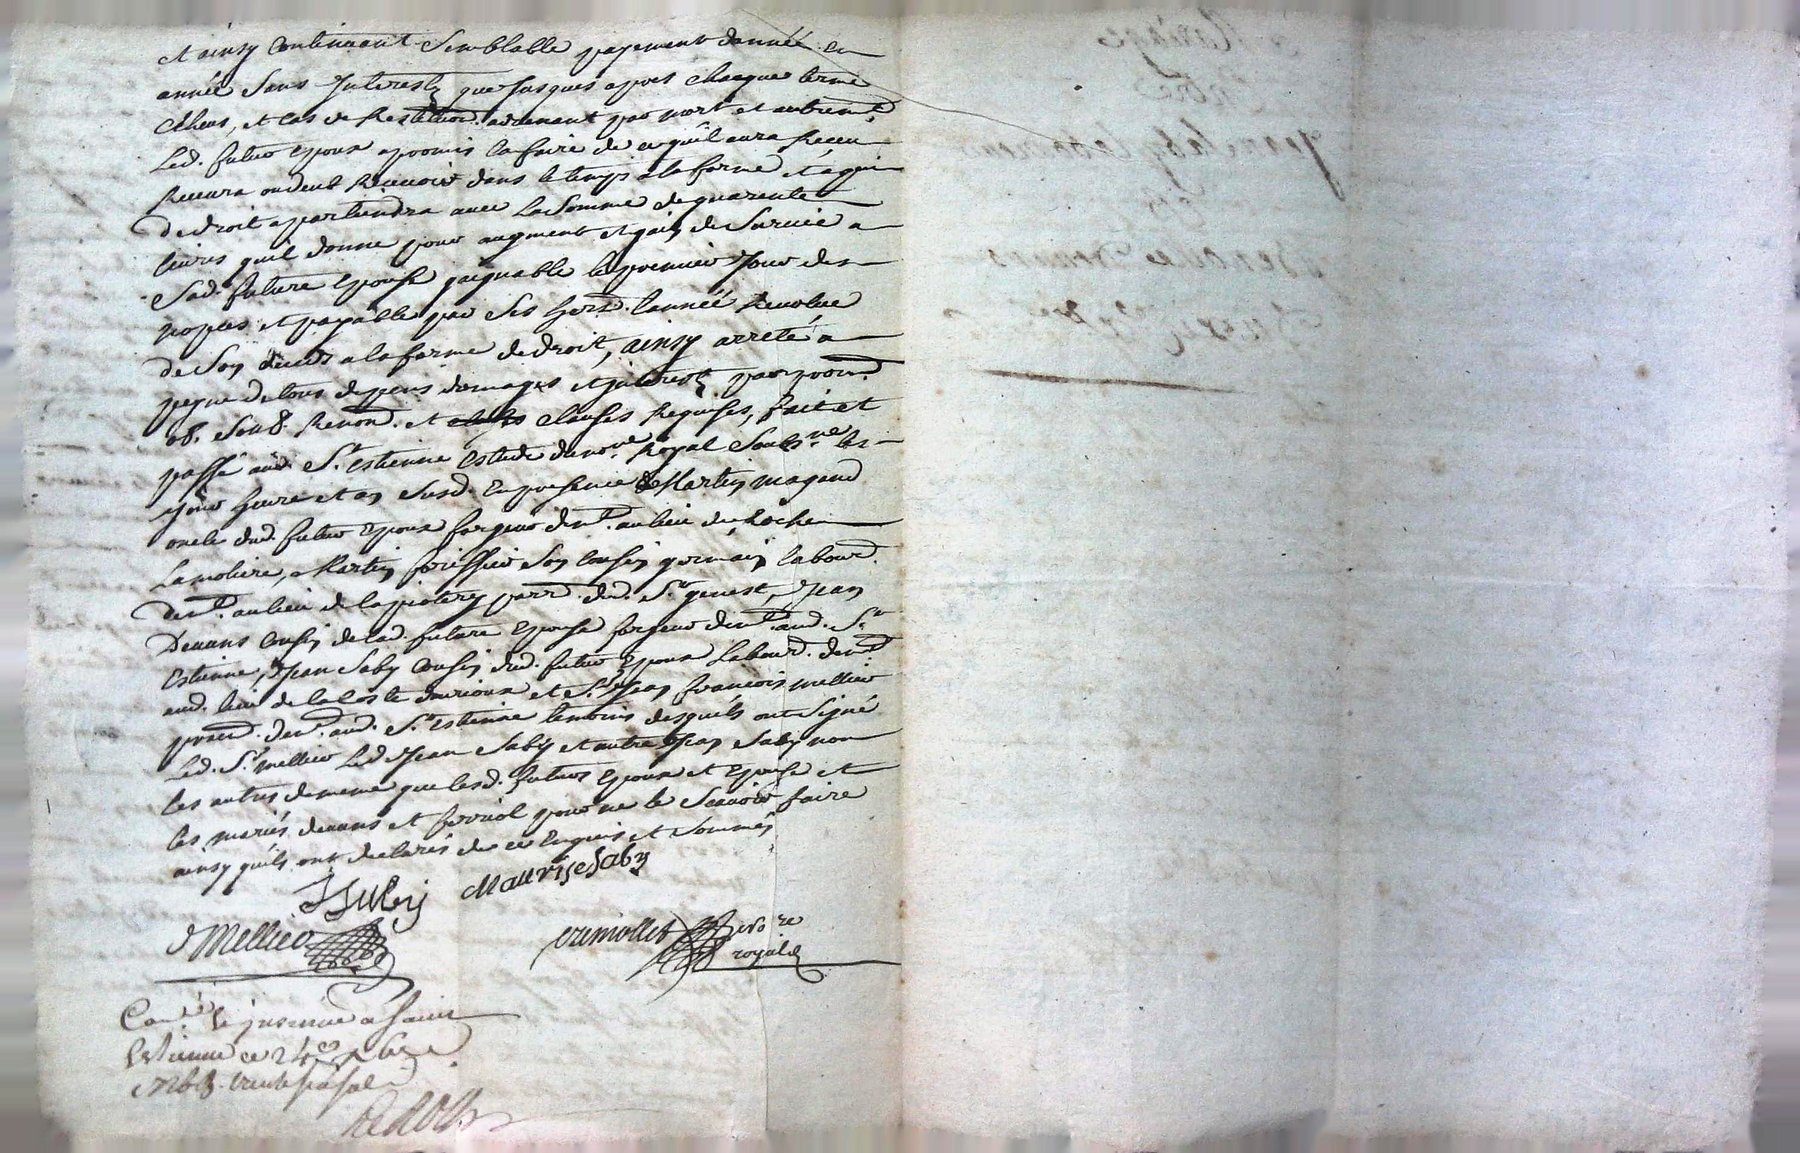 et ainsy continuant semblable payement d'année en
année sans Interests que jusques apres chacque terme
echeus, et cas de Restitution advenant par mort et autrem.t
Led. futur epoux a promis la faire de ce quil aura Receu
Recevra ou deub Recevoir dans le temps a la forme et a qui
de droit apartiendra avec la somme de quarente
livres quil donne pour augment et gain de survie a
sad. future Epouse gaignable le premier Jour des
nopces et payable par ses hers. l'année Revolue
de son deceds a la forme de droit, ainsy arreté a
peyne de tous depens domages et Interests par prom.
ob. soub. Renon. et clauses Requises, fait et
passé aud. St. Estienne Estude du no.re Royal soubs.né les
jour heure et an susd. En presence de Martin magand
oncle dud. futur Epoux forgeur dem.t au lieu du Roche
Lamoliere, Martin forissier son cousin germain labour.
dem.t au lieu de la poitery parr. dud. St. genest, Jean
Devans cousin de lad. future Epouse forgeur dem.t aud. St.
Estienne, Jean Saby cousin dud. futur Epoux Labour. dem.t
aud. lieu de la Coste et Sr. Jean francois mellier
prati. dem.t aud. St. Estienne temoins desquels ont signé
Led. Sr. mellier Led Jean Saby et autre Jean Saby non
les autres de meme que lesd. futurs Epoux et Epouse et
les mariés devans et ferriol pour ne le scavoir faire
ainsy quils ont declarés de ce Enquis et sommés
JSaby Maurise Saby
Mellier no.re
royal
Con.lé et insinué a Saint
Estienne ce 24e